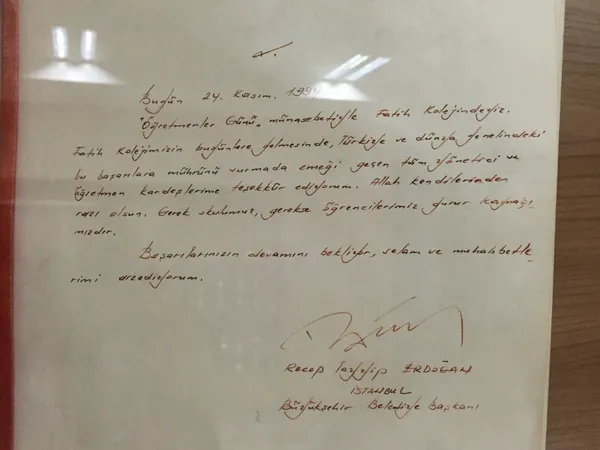 Bugün 24. Kasım. 1994
"Öğretmenler Günü" münasebetiyle Fatih Kolejindeyiz.
Fatih Kolejimizin bugünlere gelmesinde, Türkiye ve dünya genelindeki
bu başarılara mührünü vurmada emeği geçen tüm yönetici ve
öğretmen kardeşlerime teşekkür ediyorum. Allah kendilerinden
razı olsun. Gerek okulumuz, gerekse öğrencilerimiz gurur kaynağı
mızdır.
Başarılarınızın devamını bekliyor, selam ve muhabbetle
rimi arzediyorum.
Recep Tayyip ERDOĞAN
İSTANBUL
Büyükşehir Belediye Başkanı